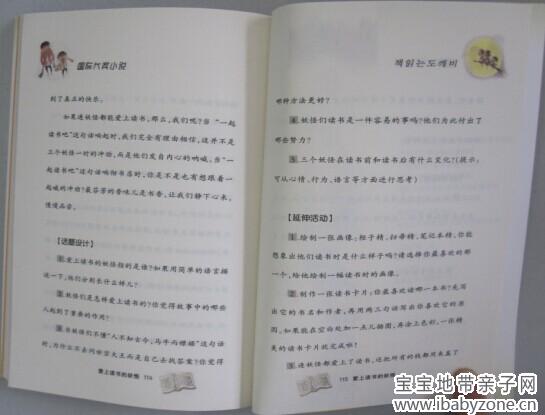 国际大奖小说
到了真正的快乐。
如果连妖怪都能爱上读书，那么，我们呢？当“一起
读书吧”这句话响起时，我们完全有理由相信，这并不是
三个妖怪一时的冲动，而是他们发自内心的呐喊。当“一
起读书吧”这句话响彻书店时，你是不是也有想跟着一
起喊的冲动？最芬芳的香味儿是书香，让我们静下心来，
慢慢品尝。
【话题设计】
1.爱上读书的妖怪指的是谁？如果用简单的语言描
述一下，他们分别长什么样儿？
2.妖怪们是怎样爱上读书的？你觉得故事中的哪些
人起到了重要的作用？
3.当妖怪们不懂“人不知古今，马牛而襟裾”这句话
时，为什么不去问世宗大王而是自己去找答案？你觉得
爱上读书的妖怪 114
책 읽는 도깨비
哪种方法更好？
4.妖怪们读书是一件容易的事吗？他们为此付出了
哪些努力？
5.三个妖怪在读书前和读书后有什么变化？（提示：
可以从心情、行为、语言等方面进行思考）
【延伸活动】
1.绘制一张画像：棍子精、扫帚精、笔记本精，你能
想象出他们读书时是什么样子吗？请选择你最喜欢的那
一个，给他绘制一幅读书时的画像。
2.制作一张读书卡片：你最喜欢读哪一本书？先写
出它的书名和作者，再用两三句话写出你喜欢它的原
因，如果能在空白处加一点儿插图，再涂上色彩，一张精
美的读书卡片就完成啦！
3.连妖怪都爱上了读书，还把所有的钱都用来盖了
115 爱上读书的妖怪
宝宝地带亲子网
www.ibabyzone.cn